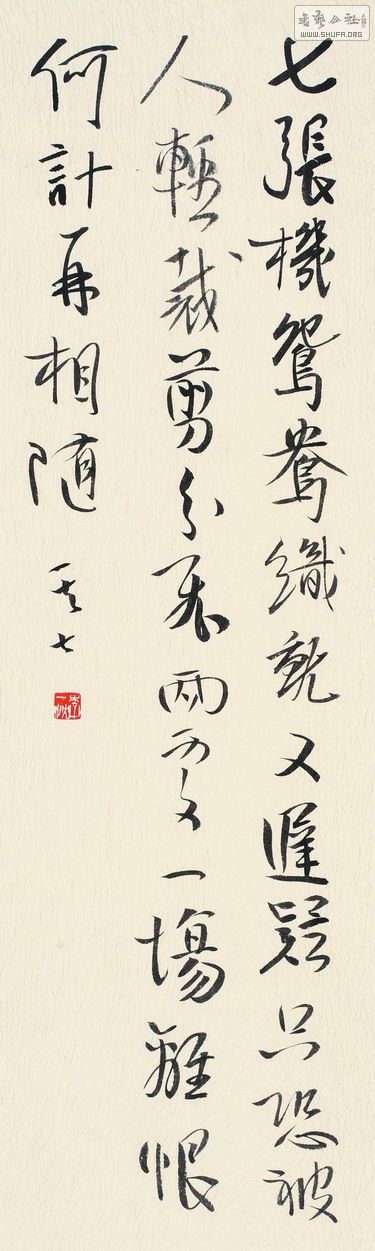 七張機鴛鴦織就又遲疑只恐被
人輕裁剪分飛兩處一場離恨
何計再相隨
其七
書藝公社
WWW.SHUFA.ORG